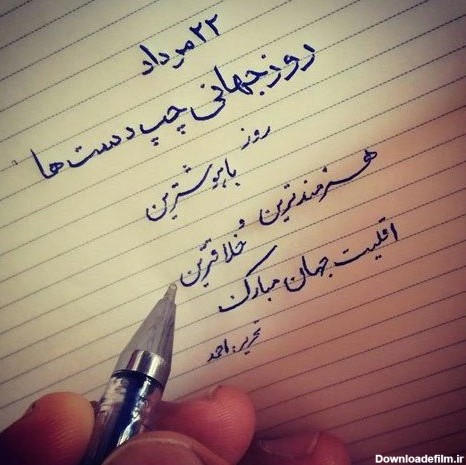 ۲۲ مرداد
روز جهانی چپ دست ها
روز
باهوشترین
هنرمندترین و
خلاقترین
اقلیت جهان مبارک
تحریر: احمد
Downloadefilm.ir